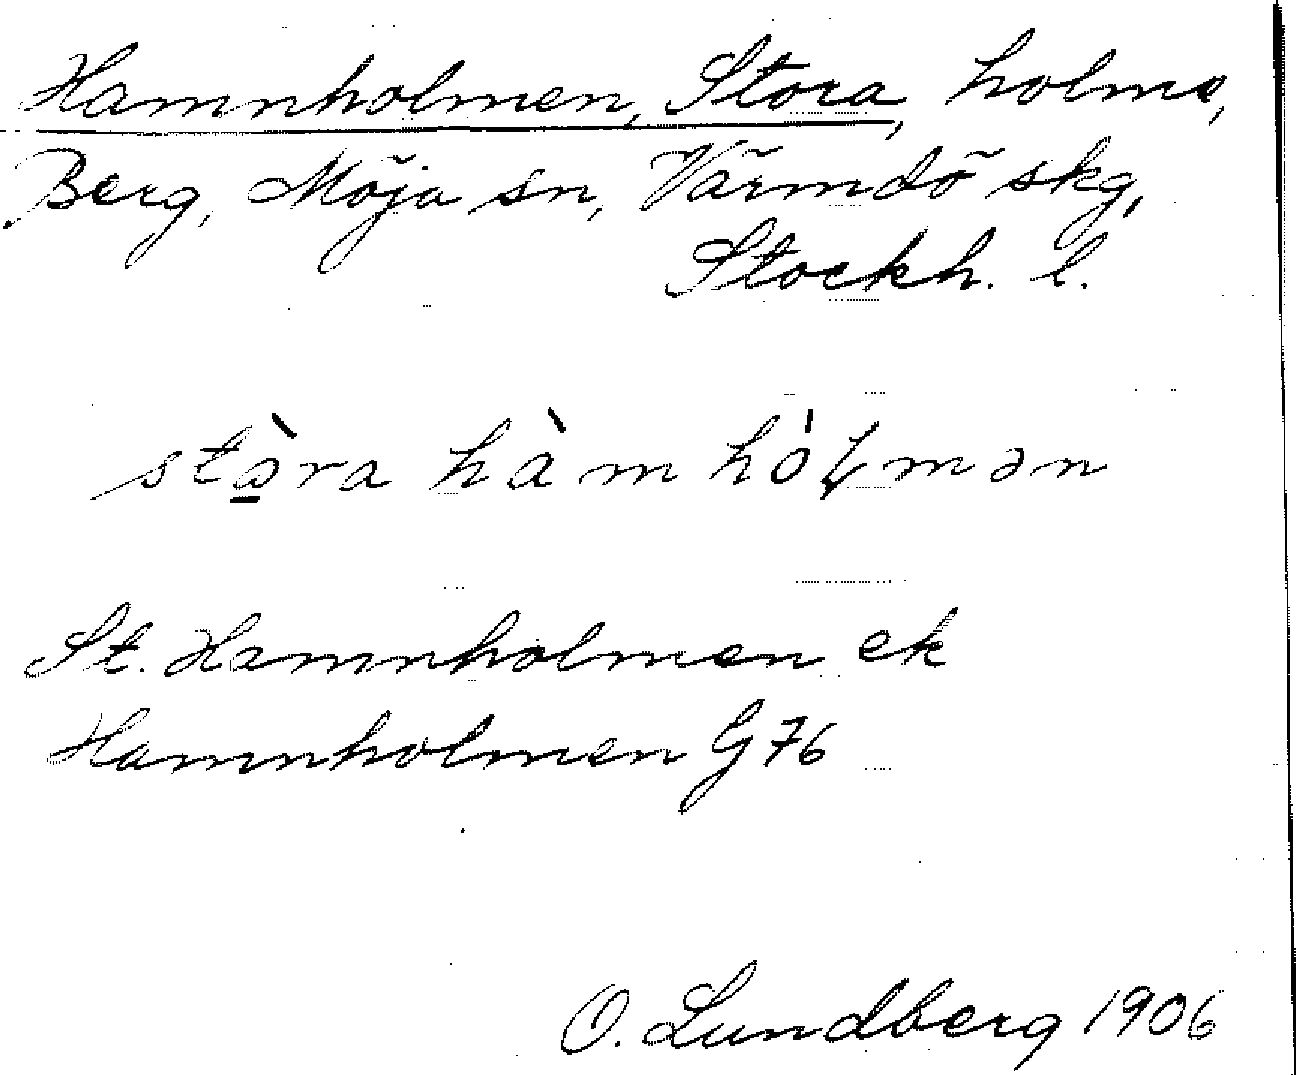 Hamnholmen, Stora, holme,
Berg, Möja sn, Värmdö skg,
Stockh. l.
stò̠ra hàm hól̵mən
St. Hamnholmen ek
Hamnholmen G 76
O. Lundberg 1906